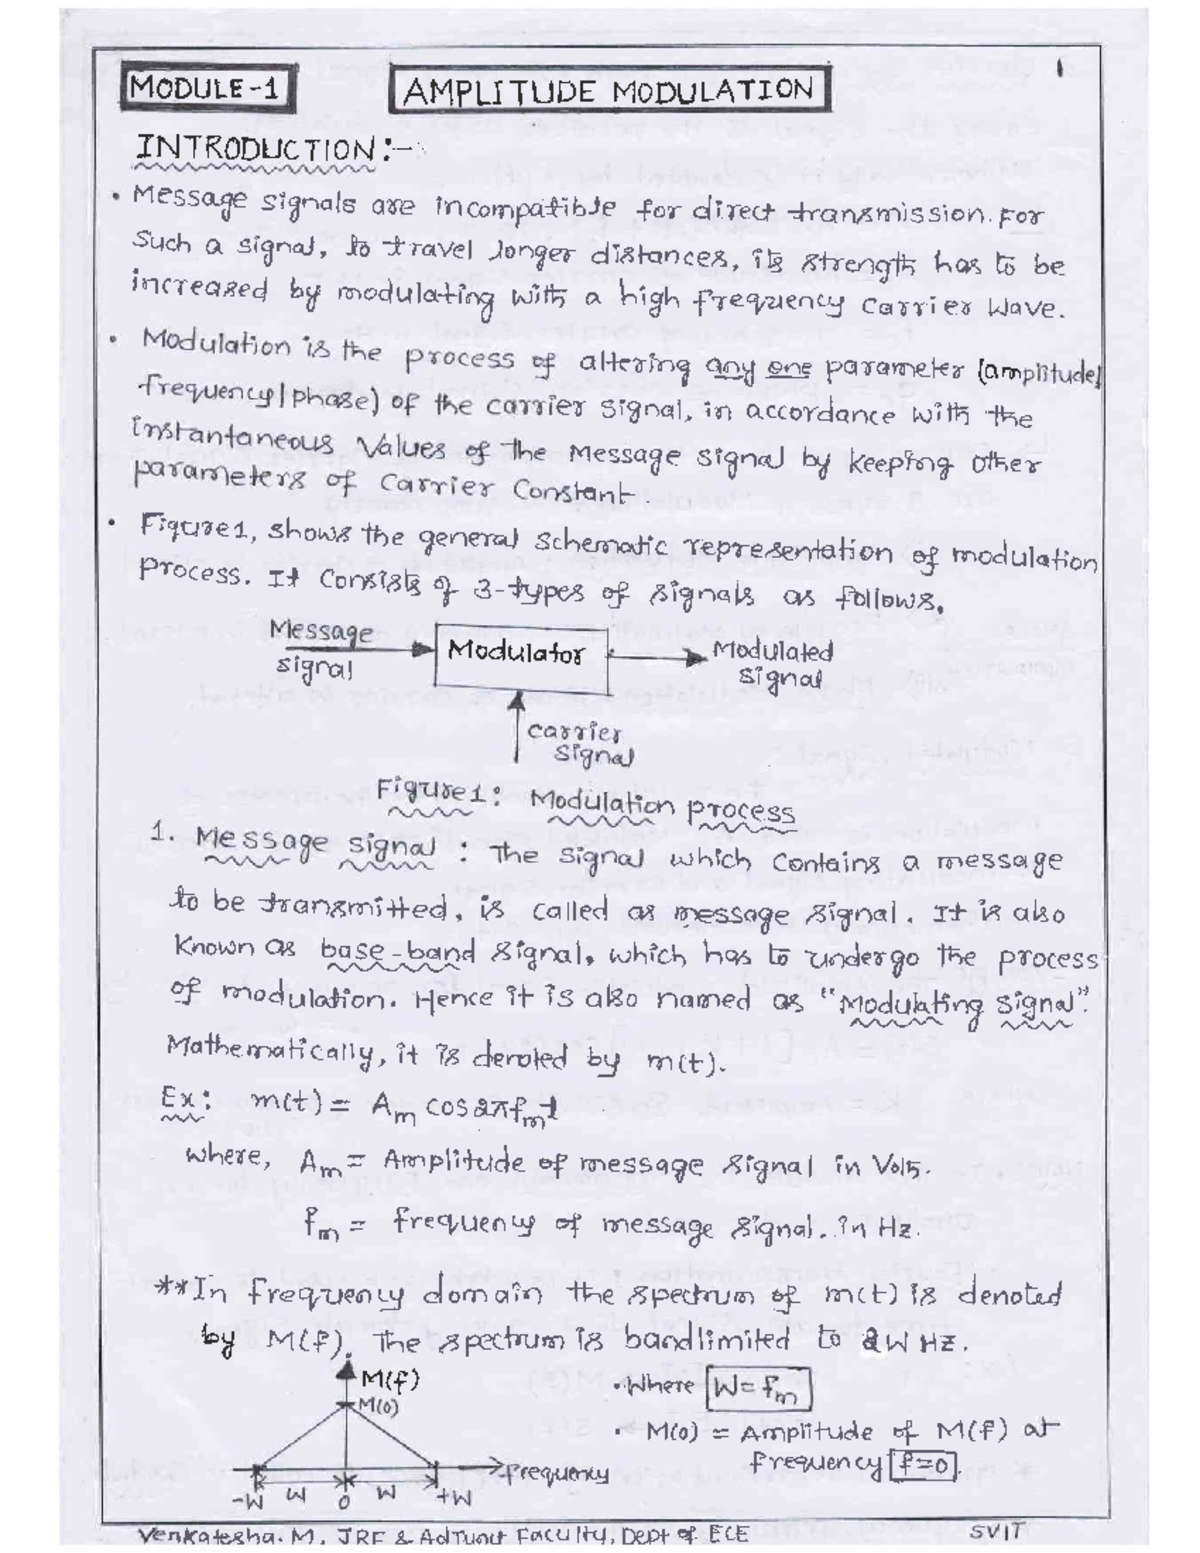 1
MODULE-1 AMPLITUDE MODULATION
INTRODUCTION:-
• Message signals are incompatible for direct transmission. For
Such a signal, to travel longer distances, its strength has to be
increased by modulating with a high frequency carrier wave.
• Modulation is the process of altering any one parameter (amplitude/
frequency/phase) of the carrier signal, in accordance with the
instantaneous values of the message signal by keeping other
parameters of carrier constant
• Figure1, shows the general schematic representation of modulation
process. It consists of 3-types of signals as follows,
Message signal
Modulator
Modulated signal
carrier signal
Figure1: Modulation process
1. Message signal : The signal which contains a message
to be transmitted, is called as message signal. It is also
known as base-band signal, which has to undergo the process
of modulation. Hence it is also named as "Modulating signal".
Mathematically, it is denoted by m(t).
Ex: m(t) = Am cos2πfmt
where, Am = Amplitude of message signal in Volts.
fm = frequency of message signal. in Hz.
**In frequency domain the spectrum of m(t) is denoted
by M(f). The spectrum is bandlimited to 2W HZ.
M(f)
M(0)
frequency
-W W 0 W +W
• Where W = fm
• M(0) = Amplitude of M(f) at
frequency f=0.
Venkatesha. M, JRF & AdJunct Faculty, Dept of ECE SVIT